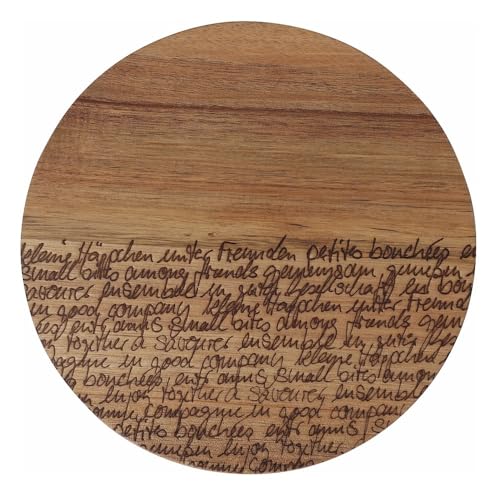 kleine Häppchen unter Freunden petites bouchées en
small bites among friends gemeinsam genießen
savourer ensemble in guter Gesellschaft en bon
in good company kleine Häppchen unter Freund
bouchées entr amis small bites among friends geme
enjoy together à savourer ensemble in guter
pagnie in good company kleine Häppchen
es bouchées entr amis small bites among
enießen enjoy together à savourer ensemble
bonne compagnie in good company
petites bouchées entr amis small
nießen enjoy together
ensemble